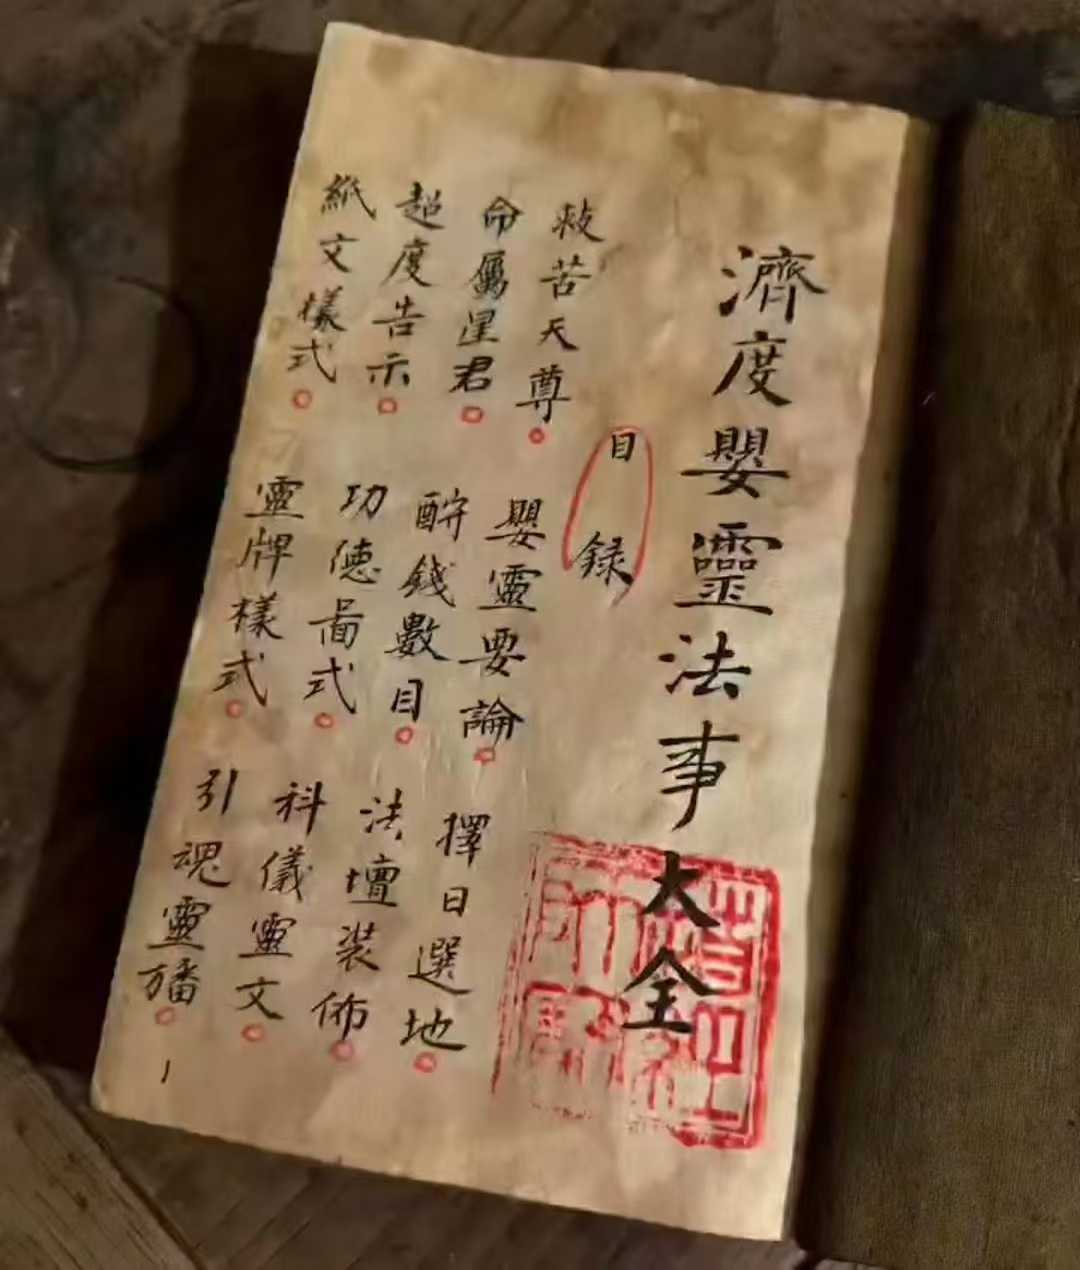 濟度嬰靈法事大全
目録
救苦天尊
嬰靈要論
擇日選地
命屬星君
酧錢數目
法壇裝佈
超度告示
功德啚式
科儀靈文
紙文樣式
靈牌樣式
引魂靈旛
1